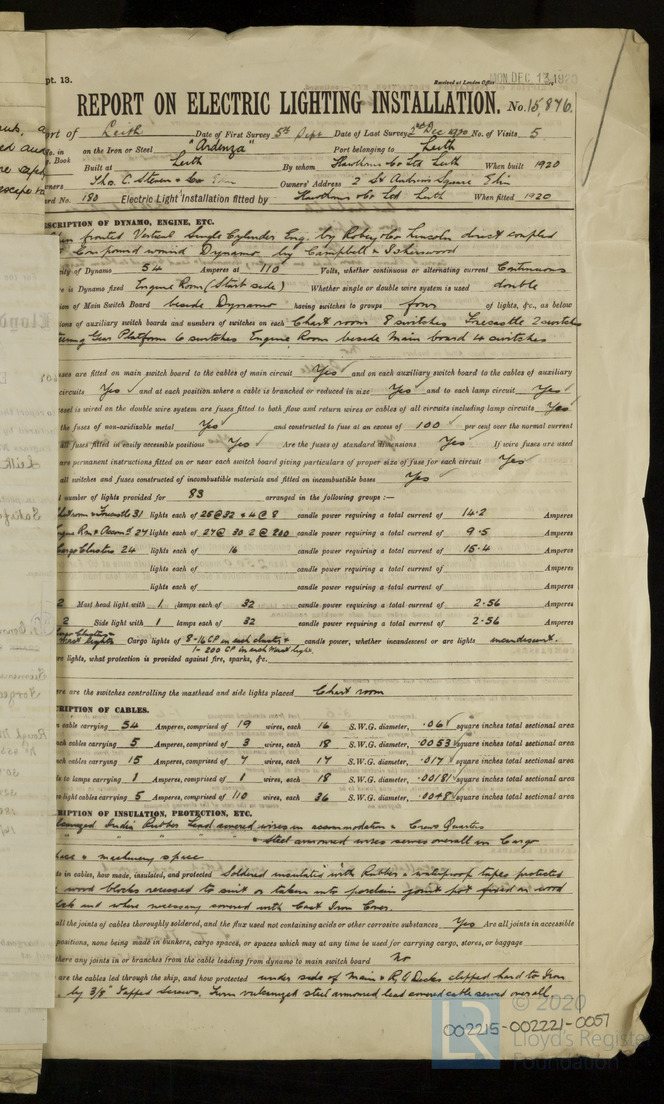 pt. 13.
Received at London Office MON. DEC. 13. 1920
REPORT ON ELECTRIC LIGHTING INSTALLATION. No. 15,876.
ort of Leith Date of First Survey 5th Sept Date of Last Survey 2nd Dec 1920 No. of Visits 5
o. in on the Iron or Steel "Ardenza" Port belonging to Leith
. Book Built at Leith By whom Hawthorns & Co Ltd Leith When built 1920
wners Owners' Address 2 St Andrews Square
rd No. 180 Electric Light Installation fitted by Hawthorns & Co Ltd Leith When fitted 1920
SCRIPTION OF DYNAMO, ENGINE, ETC.
fronted Vertical Single Cylinder Eng. by Robey & Co Lincoln direct coupled
Compound wound Dynamo by Campbell & Isherwood
ity of Dynamo 54 Amperes at 110 Volts, whether continuous or alternating current Continuous
re is Dynamo fixed Engine Room (Start side) Whether single or double wire system is used double
ion of Main Switch Board beside Dynamo having switches to groups four of lights, &c., as below
ions of auxiliary switch boards and numbers of switches on each Chart room 8 switches Forecastle 2 switches
eering Gear Platform 6 switches Engine Room beside Main board 4 switches
uses are fitted on main switch board to the cables of main circuit Yes and on each auxiliary switch board to the cables of auxiliary
circuits Yes and at each position where a cable is branched or reduced in size Yes and to each lamp circuit Yes
essel is wired on the double wire system are fuses fitted to both flow and return wires or cables of all circuits including lamp circuits Yes
the fuses of non-oxidizable metal Yes and constructed to fuse at an excess of 100 per cent over the normal current
all fuses fitted in easily accessible positions Yes Are the fuses of standard dimensions Yes If wire fuses are used
are permanent instructions fitted on or near each switch board giving particulars of proper size of fuse for each circuit Yes
all switches and fuses constructed of incombustible materials and fitted on incombustible bases Yes
l number of lights provided for 83 arranged in the following groups :—
Chartroom & Forecastle 31 lights each of 25@32 & 4@8 candle power requiring a total current of 14.2 Amperes
ngine Rm & Accomd 27 lights each of 27@30 2@200 candle power requiring a total current of 9.5 Amperes
Cargo Clusters 24 lights each of 16 candle power requiring a total current of 15.4 Amperes
lights each of candle power requiring a total current of Amperes
lights each of candle power requiring a total current of Amperes
2 Mast head light with 1 lamps each of 32 candle power requiring a total current of 2.56 Amperes
2 Side light with 1 lamps each of 32 candle power requiring a total current of 2.56 Amperes
Cargo Clusters &
Cargo lights of 8-16 CP in each cluster & candle power, whether incandescent or arc lights incandescent.
1-200 CP in each light.
re lights, what protection is provided against fire, sparks, &c.
ere are the switches controlling the masthead and side lights placed Chart room
CRIPTION OF CABLES.
n cable carrying 54 Amperes, comprised of 19 wires, each 16 S.W.G. diameter, .06 square inches total sectional area
nch cables carrying 5 Amperes, comprised of 3 wires, each 18 S.W.G. diameter, .0053 square inches total sectional area
nch cables carrying 15 Amperes, comprised of 7 wires, each 17 S.W.G. diameter, .017 square inches total sectional area
s to lamps carrying 1 Amperes, comprised of 1 wires, each 18 S.W.G. diameter, .00181 square inches total sectional area
o light cables carrying 5 Amperes, comprised of 110 wires, each 36 S.W.G. diameter, .0048 square inches total sectional area
RIPTION OF INSULATION, PROTECTION, ETC.
India Rubber Lead covered wires in accommodation & Crews Quarters
" " " & steel armoured wires served overall in Cargo
& machinery space
ts in cables, how made, insulated, and protected Soldered insulated with Rubber & waterproof tapes protected
wood blocks recessed to suit or taken into porcelain joint pot fixed on wood
and where necessary covered with Cast Iron Cover.
all the joints of cables thoroughly soldered, and the flux used not containing acids or other corrosive substances Yes Are all joints in accessible
positions, none being made in bunkers, cargo spaces, or spaces which may at any time be used for carrying cargo, stores, or baggage
there any joints in or branches from the cable leading from dynamo to main switch board No
are the cables led through the ship, and how protected under side of Main & R.Q. Decks clipped hard to Iron
by 3/8" Tapped Screws. vulcanized steel armoured lead covered cable served overall
002215-002221-0057
© 2020
LR
Lloyd's Register
Foundation